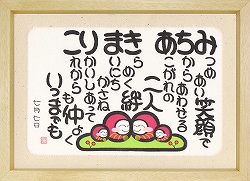 みつめあい笑顔で
ちからあわせる
あこがれの二人
きらめく絆
まいにちかさね
りかいしあって
これからも仲よく
いつまでも
七月七日